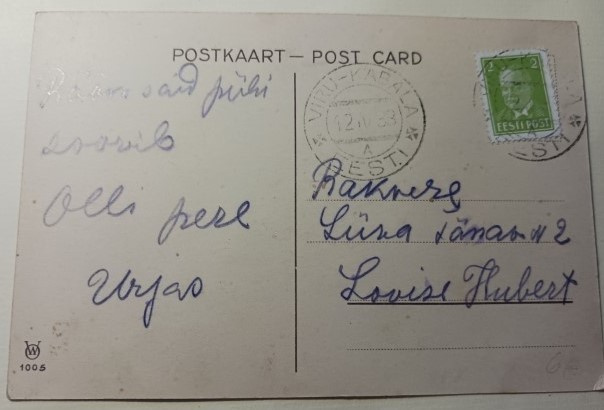 POSTKAART — POST CARD
said pühi
soovib
Olli pere
Urjas
VIRU-KABALA
12 IV 33
A
EESTI
2 2
EESTI POST
Rakvere
tänav N 2
Lovise Hubert
1005